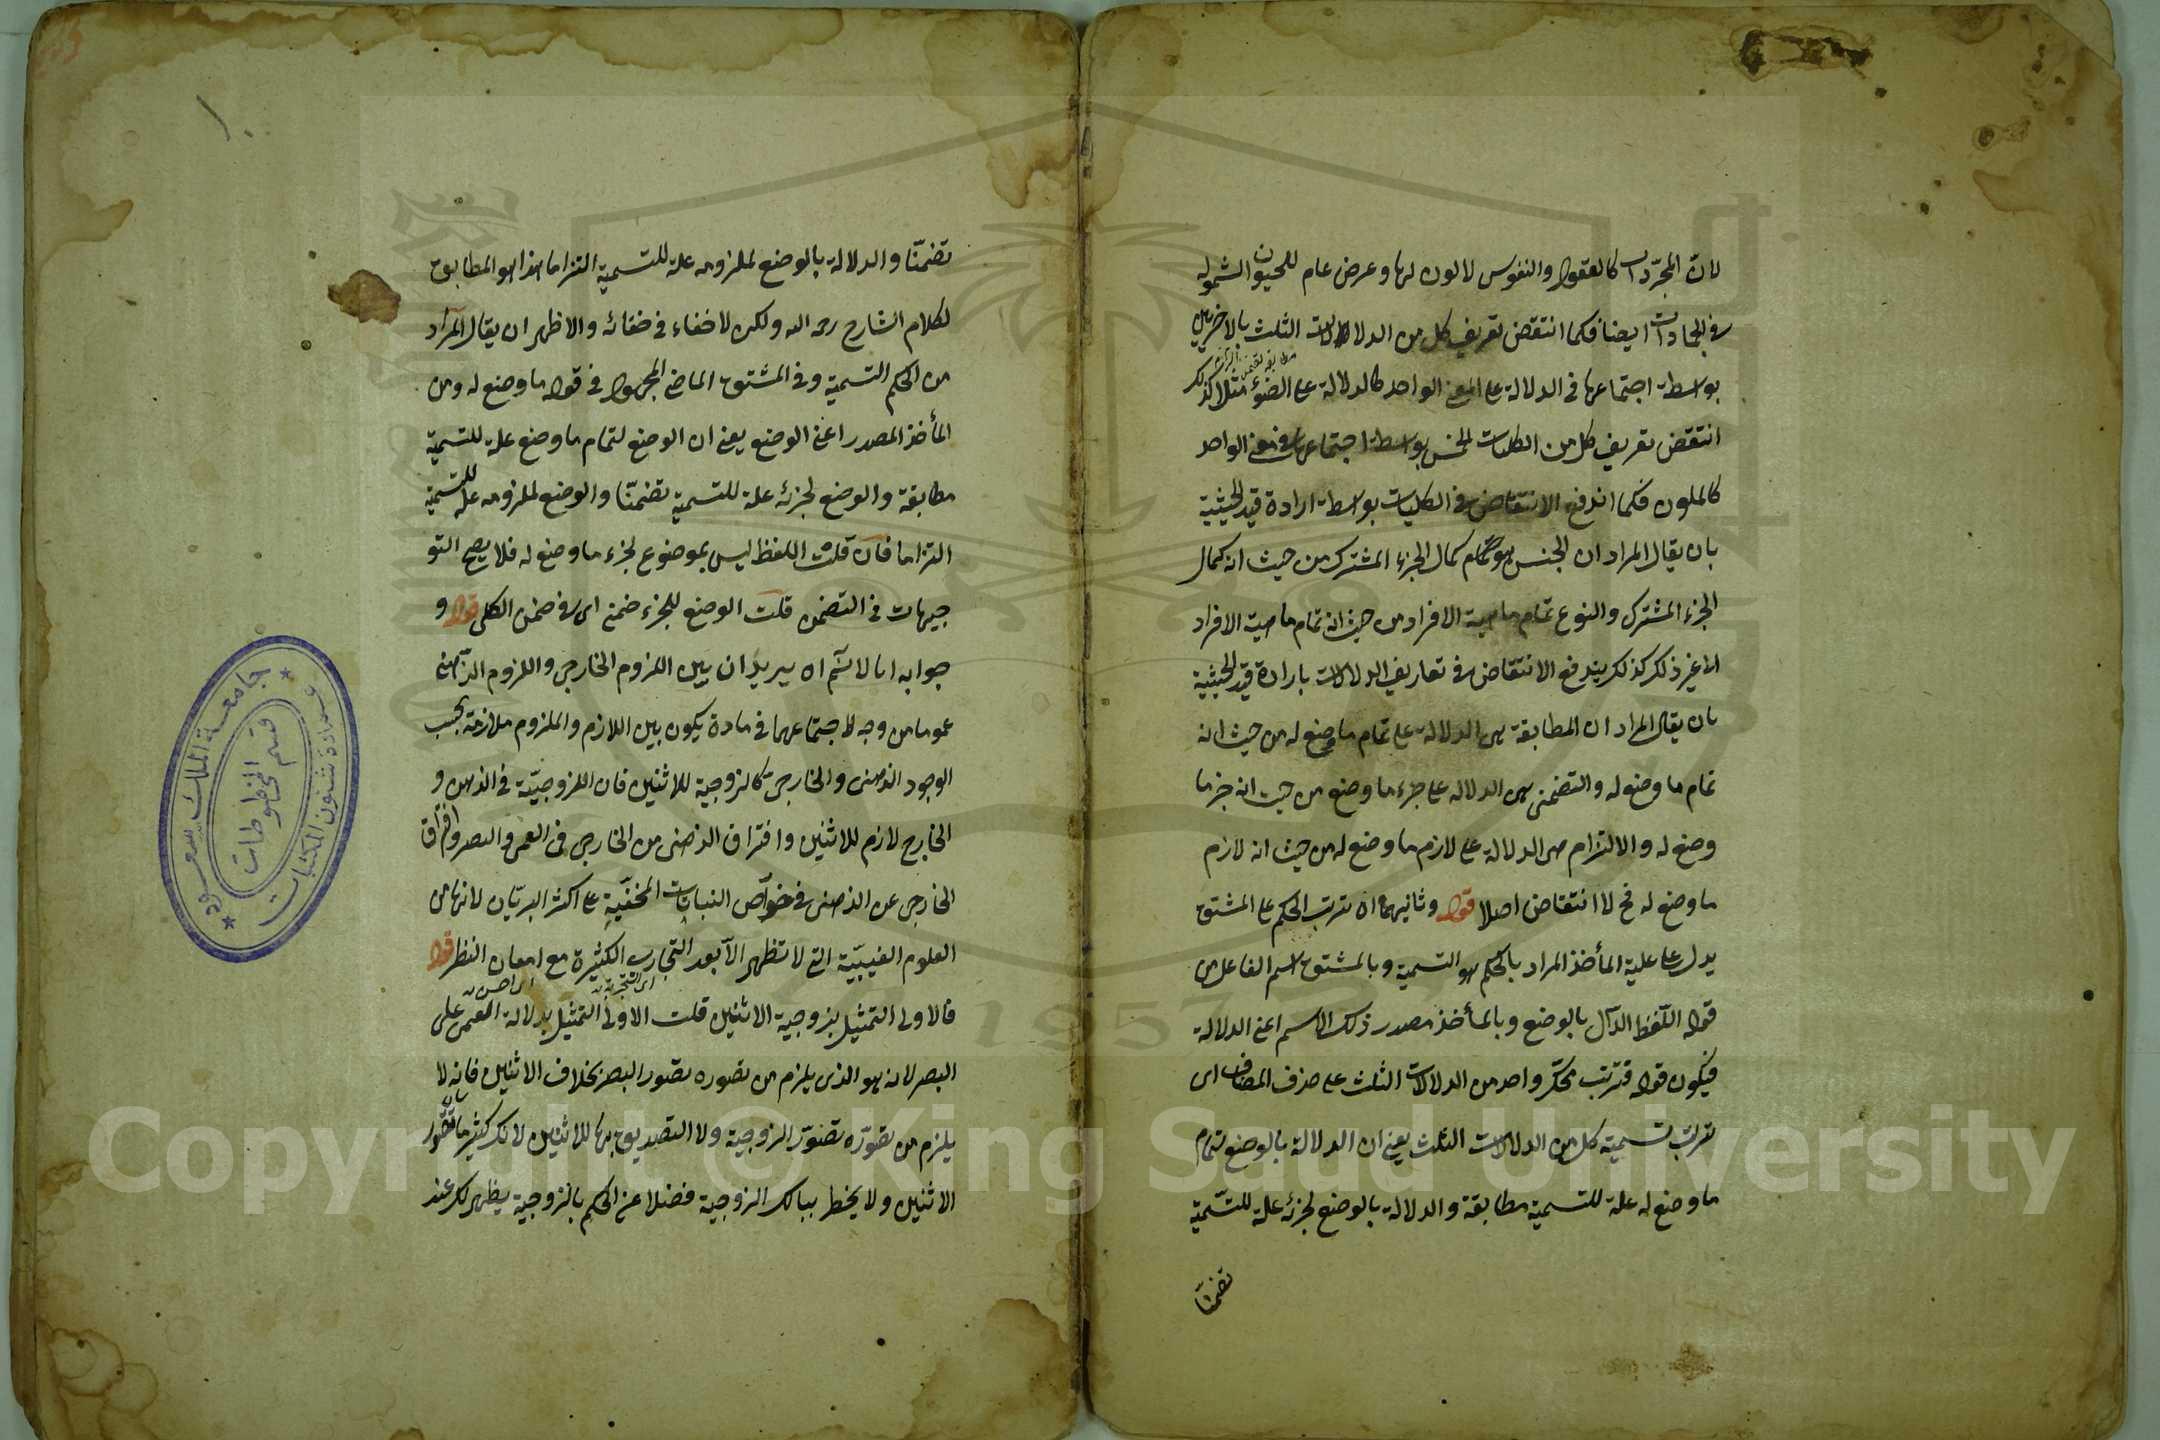 لان المجردات كالعقول والنفوس لا لون لها وعرض عام للحيوان لشموله
في الجمادات ايضا فكما انتقض تعريف كل من الدلالات الثلث بالاخريين
مطابقة تضمن التزام
بواسطة اجتماعها في الدلالة على المعنى الواحد كالدلالة على الضوء مثلا كذلك
انتقض تعريف كل من الكليات الخمس بواسطة اجتماعها في معنى الواحد
كالملون فكما اندفع الانتقاض في الكليات بواسطة ارادة قيد الحيثية
بان يقال المراد ان الجنس هو تمام كمال الجزء المشترك من حيث انه كمال
الجزء المشترك والنوع تمام ماهية الافراد من حيث انه تمام ماهية الافراد
الى غير ذلك كذلك يندفع الانتقاض في تعاريف الدلالات بارادة قيد الحيثية
بان يقال المراد ان المطابقة هي الدلالة على تمام ما وضع له من حيث انه
تمام ما وضع له والتضمن هي الدلالة على جزء ما وضع من حيث انه جزء ما
وضع له والالتزام هي الدلالة على لازم ما وضع له من حيث انه لازم
ما وضع له فح لا انتقاض اصلا قوله وثانيهما ان ترتب الحكم على المشتق
يدل على علية المأخذ المراد بالحكم هو التسمية وبالمشتق اسم الفاعل من
قوله اللفظ الدال بالوضع وبالمأخذ مصدر ذلك الاسم اعني الدلالة
فيكون قوله فترتب حكم واحد من الدلالات الثلث على حذف المضاف اى
ترتب تسمية كل من الدلالات الثلث يعني ان الدلالة بالوضع لتمام
ما وضع له علة للتسمية مطابقة والدلالة بالوضع لجزئه علة للتسمية
تضمنا
١٠
تضمنا والدلالة بالوضع لملزومه علة للتسمية التزاما هذا هو المطابق
لكلام الشارح رحمه الله ولكن لا خفاء في خفائه والاظهر ان يقال المراد
من الحكم التسمية وفي المشتق الماضي المجهول في قوله ما وضع له ومن
المأخذ المصدر اعني الوضع يعني ان الوضع لتمام ما وضع علة للتسمية
مطابقة والوضع لجزئه علة للتسمية تضمنا والوضع لملزومه علة للتسمية
التزاما فان قلت اللفظ ليس بموضوع لجزء ما وضع له فلا يصح التو
جيهات في التضمن قلت الوضع للجزء ضمني اى في ضمن الكلي قوله و
جوابه انا لا نسلم اه يريد ان بين اللزوم الخارجي واللزوم الذهني
عموما من وجه لاجتماعهما في مادة يكون بين اللازم والملزوم ملازمة بحسب
الوجود الذهني والخارجي كالزوجية للاثنين فان الزوجية في الذهن و
الخارج لازم للاثنين وافتراق الذهني من الخارجي في العمى والبصر وافتراق
الخارجي عن الذهني في خواص النباتات المخفية على اكثر البريات لانها من
العلوم الغيبية التي لا تظهر الا بعد التجارب الكثيرة مع امعان النظر قوله
فالاولى التمثيل بزوجية الاثنين قلت الاولى التمثيل بدلالة العمى على
البصر لانه هو الذى يلزم من تصوره تصور البصر بخلاف الاثنين فانه لا
يلزم من تصوره تصور الزوجية ولا التصديق بها للاثنين لانك كثيرا ما تتصور
الاثنين ولا يخطر ببالك الزوجية فضلا عن الحكم بالزوجية يظهر لك عند
جامعة الملك سعود
عمادة شئون المكتبات
قسم المخطوطات
1957
Copyright © King Saud University